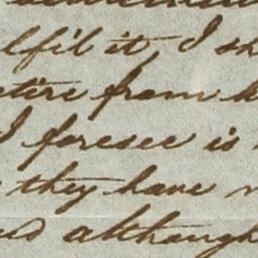 lfil it, I sh
etire from b
I foresee is
they have n
and although